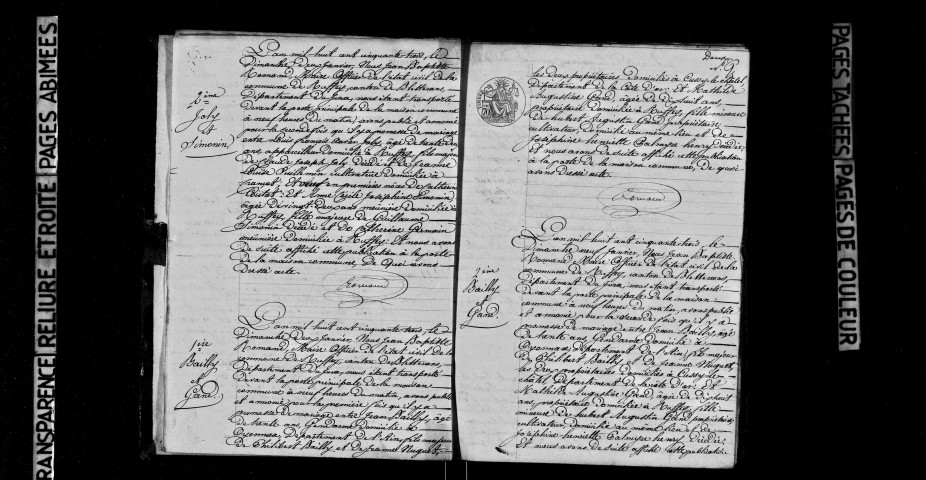 TRANSPARENCE RELIURE ETROITE PAGES ABIMEES
2eme
Joly
et
Simonin
L'an mil huit cent cinquante trois, le
Dimanche deux janvier, Nous Jean Baptiste
Romand Maire Officier de l'état civil de la
commune de Ruffey, canton de Bletterans,
département du Jura, nous étant transporté
devant la porte principale de la maison commune
à neuf heures du matin, avons publié et annoncé
pour la seconde fois qu'il y a promesse de mariage
entre Louis François Joly, âgé de trente
ans, domicilié à Ruffey, fils majeur
de Joseph Joly décédé et de Jeanne
Louise Guillemin cultivatrice domiciliée à
et veuf en premières noces de
Et Anne Josephine Simonin,
âgée de vingt deux ans domiciliée à
Ruffey, fille majeure de Guillaume
Simonin décédé et de Catherine Germain
domiciliée à Ruffey. Et nous avons
de suite affiché cette publication à la porte
de la maison commune, De quoi avons
dressé acte.
Romand
1ere
Bailly
et
Gand.
L'an mil huit cent cinquante trois, le
Dimanche deux janvier, Nous Jean Baptiste
Romand Maire Officier de l'état civil de la
commune de Ruffey, canton de Bletterans,
Département du Jura, nous étant transporté
devant la porte principale de la maison
commune à neuf heures du matin, avons publié
et annoncé pour la première fois qu'il y a
promesse de mariage entre Jean Bailly, âgé
de trente ans Gendarme Domicilié à
Oyonnax, Département de l'Ain, fils majeur
de Philibert Bailly et de Jeanne Nuguet,
les deux propriétaires domiciliés à
département de la Côte d'or, et Mathilde
Augustine Gand, âgée de dix huit ans,
propriétaire domiciliée à Ruffey, fille mineure
de hubert Augustin Gand propriétaire,
cultivateur domicilié au même lieu et de
Joséphine henriette Palmyre henry décédée.
Et nous avons de suite affiché cette publication
à la porte de la maison commune, de quoi
avons dressé acte.
Romand
2eme
Bailly
et
Gand.
L'an mil huit cent cinquante trois, le
Dimanche neuf janvier, Nous Jean Baptiste
Romand Maire Officier de l'état civil de la
commune de Ruffey, canton de Bletterans,
Département du Jura, nous étant transporté
devant la porte principale de la maison
commune à neuf heures du matin, avons publié
et annoncé pour la seconde fois qu'il y a
promesse de mariage entre Jean Bailly, âgé
de trente ans, Gendarme Domicilié à
Oyonnax, Département de l'Ain, fils majeur
de Philibert Bailly et de Jeanne Nuguet,
les deux propriétaires domiciliés à
département de la Côte d'or. Et
Mathilde Augustine Gand, âgée de dix huit
ans, propriétaire domiciliée à Ruffey, fille
mineure de hubert Augustin Gand, propriétaire
cultivateur domicilié au même lieu et de
Joséphine henriette Palmyre henry, décédée.
Et nous avons de suite affiché cette publication
PAGES TACHEES PAGES DE COULEUR